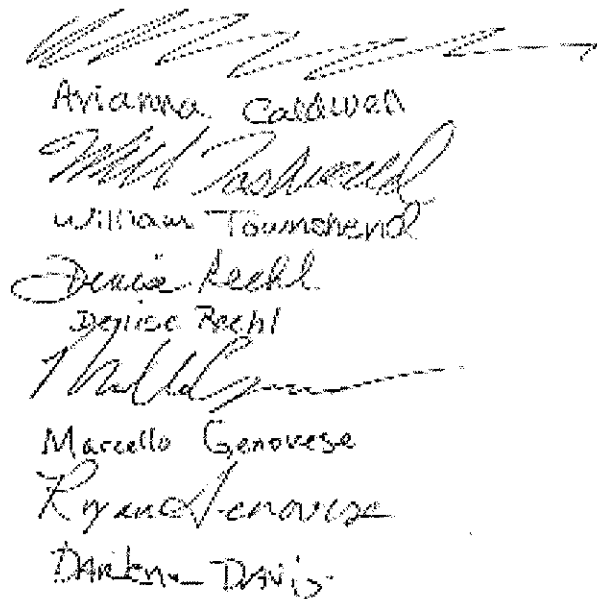 Arianna Caldwell
William Townshend
Denise Reehl
Denise Reehl
Marcello Genovese
Ryan Genovese
Darlene Davis